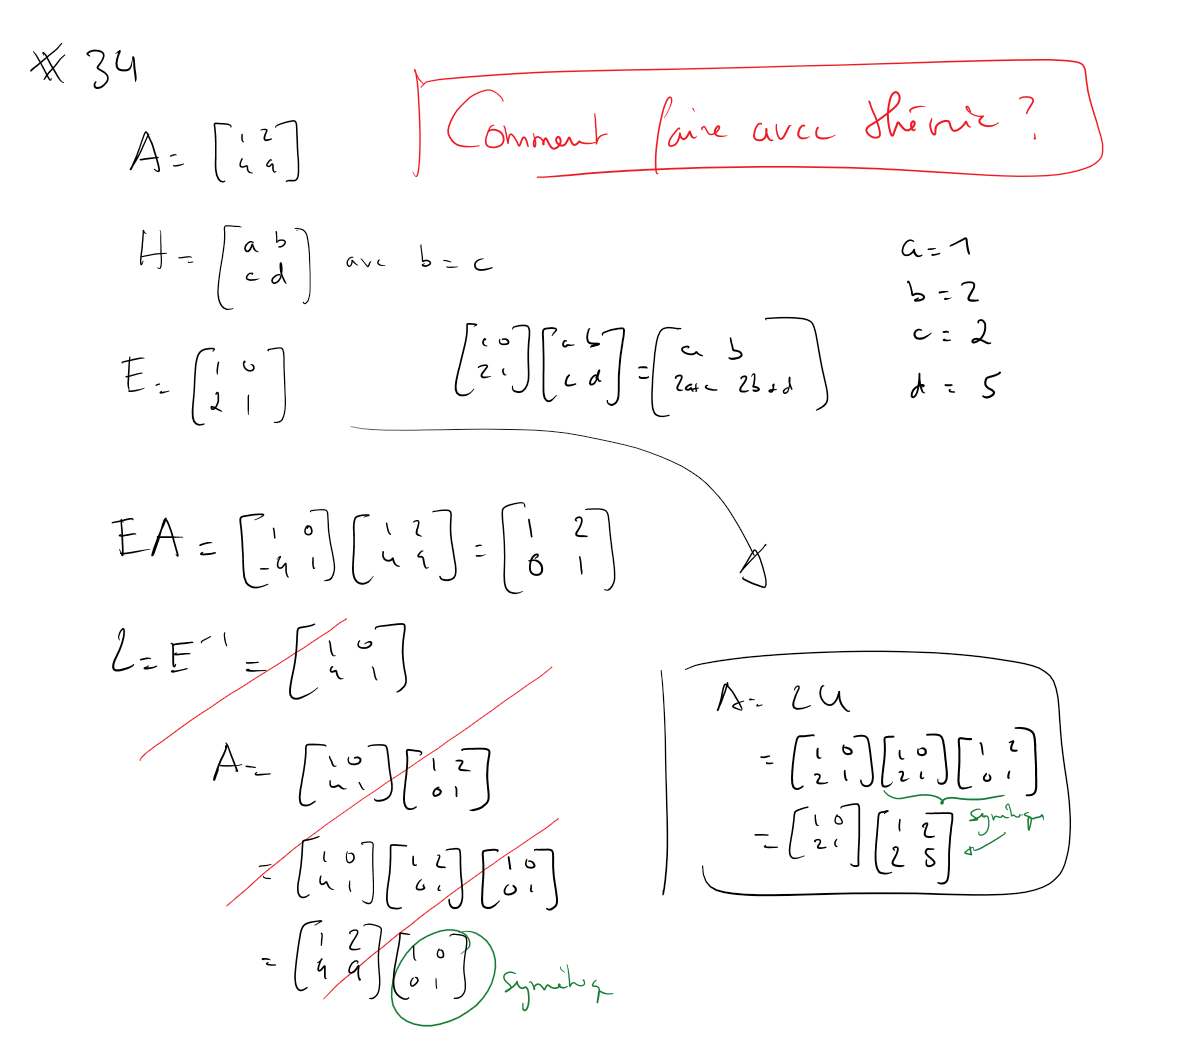 # 34
Comment faire avec théorie ?
A = [1 2; 4 9]
H = [a b; c d] avec b = c
a = 1
b = 2
c = 2
d = 5
E = [1 0; 2 1]
[1 0; 2 1] [a b; c d] = [a b; 2a+c 2b+d]
EA = [1 0; -4 1] [1 2; 4 9] = [1 2; 0 1]
L = E⁻¹ = [1 0; 4 1]
A = [1 0; 4 1] [1 2; 0 1]
= [1 0; 4 1] [1 2; 0 1] [1 0; 0 1]
= [1 2; 4 9] [1 0; 0 1]
A = LU
= [1 0; 2 1] [1 0; 2 1] [1 2; 0 1]
= [1 0; 2 1] [1 2; 2 5]